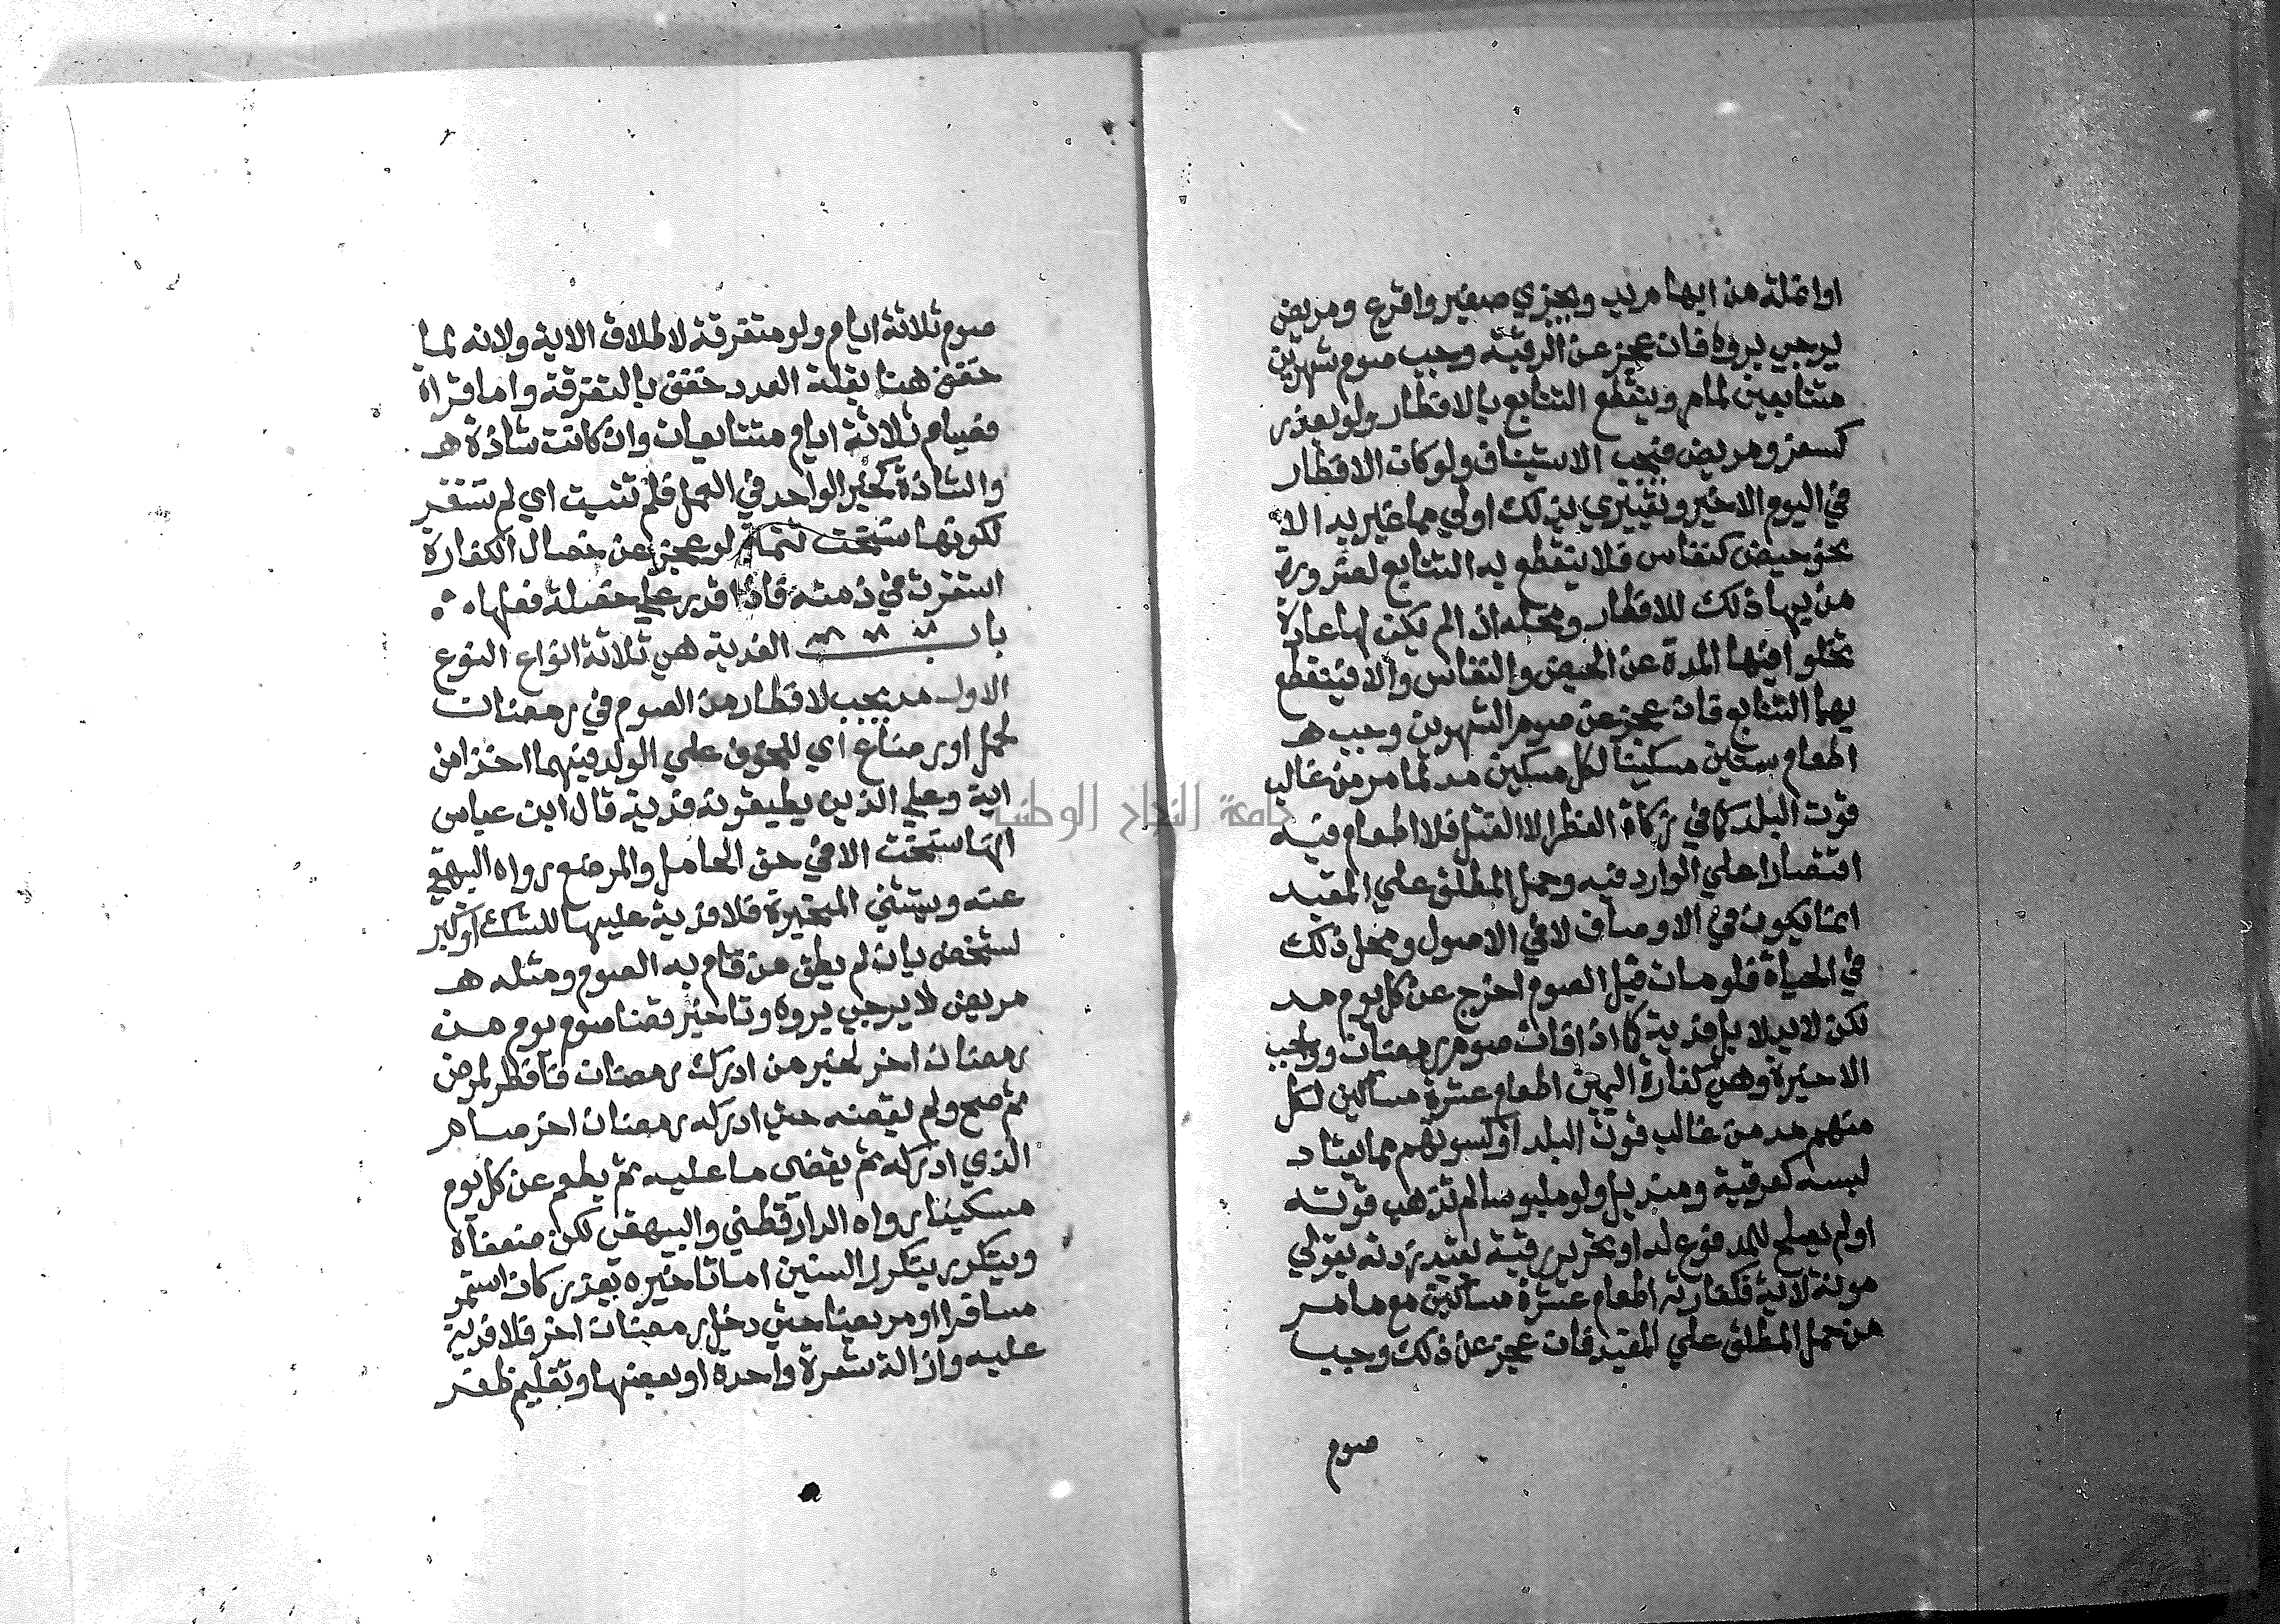 او انملة من ابهام يد ويجزي صغير واقرع ومريض
يرجي بروه فان عجز عن الرقبة وجب صوم شهرين
متتابعين لمامر وينقطع التتابع بالافطار ولو بعذر
كسفر ومريض فيجب الاستيناف ولو كان الافطار
في اليوم الاخير وتعبيري بذلك اولي مما عبر به الا
بنحو حيض كنفاس فلا ينقطع به التتابع لضرورة
من بها ذلك للافطار ومحله اذا لم يكن لها عادة
تخلوا فيها المدة عن الحيض والنفاس والا فينقطع
بهما التتابع فان عجز عن صوم الشهرين وجب
اطعام ستين مسكينا لكل مسكين مد تمامر من غالب
قوت البلد كما في زكاة الفطر الا القتل فلا اطعام فيه
اقتصارا علي الوارد فيه وحمل المطلق علي المقيد
انما فيكون في الاوصاف لا في الاصول ومحل ذلك
في الحياة فلو مات قبل الصوم اخرج عن كل يوم مد
لكن لا بدلا بل فدية كما اذا فات صوم رمضان وواجب
الاخيرة وهي كفارة اليمين اطعام عشرة مساكين لكل
منهم مد من غالب قوت البلد او كسوتهم مما يعتاد
لبسه كعرقية ومنديل ولو ملبوسا لم تذهب قوته
او لم يصلح للمدفوع له او تحرير رقبة لعتيد زدته بقولي
مونة لاية فكفارته اطعام عشرة مساكين مع مامر
من حمل المطلق علي المقيد فان عجز عن ذلك وجب
صوم
صوم ثلاثة ايام ولو متفرقة لاطلاق الاية ولانه لما
خفف هنا بقلة العدد خفف بالتفرقة واما قراة
فصيام ثلاثة ايام متتابعات وان كانت شاذة
والشاذة كخبر الواحد في العمل فلم تثبت اي لم تستقر
لكونها نسخت تتمة لو عجز عن خصال الكفارة
استقرت في ذمته فاذا قدر علي خصلة فعلها
باب الفدية هي ثلاثة انواع النوع
الاول مد يجب لافطار من الصوم في رمضان
لحمل او رضاع اي للخوف علي الولد فيهما اخذا من
اية وعلي الذين يطيقونه فدية قال ابن عباس
انها نسخت الا في حق الحامل والمرضع رواه البيهقي
عنه ويستثني المتحيرة فلا فدية عليها للشك او كبر
لشخص بان لم يطق من قام به الصوم ومثله
مريض لا يرجي بروه وتاخير قضا صوم يوم من
رمضان اخر لخبر من ادرك رمضان فافطر لمرض
ثم صح ولم يقضه حتي ادركه رمضان اخر صام
الذي ادركه ثم يقضي ما عليه ثم يطعم عن كل يوم
مسكينا رواه الدارقطني والبيهقي لكن ضعفاه
ويتكرر بتكرر السنين اما تاخيره بعذر كان استمر
مسافرا او مريضا حتي دخل رمضان اخر فلا فدية
عليه وازالة شعرة واحدة او بعضها وتقليم ظفر
جامعة النجاح الوطنية